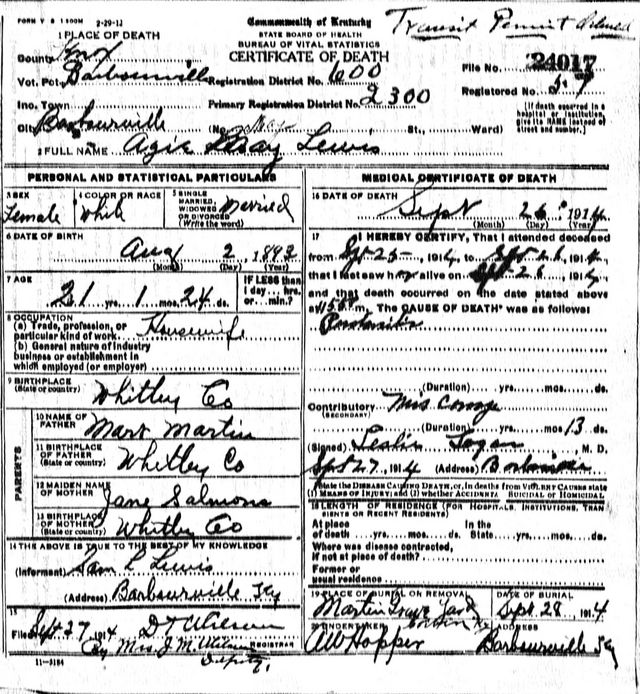 FORM V S 1 2-29-12
Commonwealth of Kentucky
STATE BOARD OF HEALTH
BUREAU OF VITAL STATISTICS
CERTIFICATE OF DEATH
Transit Permit
1 PLACE OF DEATH
County Knox
Vot. Pct. Barbourville Registration District No. 600
Inc. Town Primary Registration District No. 2300
City Barbourville (No. St., Ward)
File No. 24017
Registered No. 57
[If death occurred in a hospital or institution, give its NAME instead of street and number.]
2 FULL NAME Agie Lewis
PERSONAL AND STATISTICAL PARTICULARS
3 SEX Female
4 COLOR OR RACE White
5 SINGLE MARRIED, WIDOWED OR DIVORCED (Write the word) Married
6 DATE OF BIRTH Aug 2, 1893
(Month) (Day) (Year)
7 AGE 21 yrs. 1 mos. 24 ds.
IF LESS than 1 day... hrs. or... min.?
8 OCCUPATION
(a) Trade, profession, or particular kind of work Housewife
(b) General nature of industry business or establishment in which employed (or employer)
9 BIRTHPLACE (State or country) Whitley Co
PARENTS
10 NAME OF FATHER Mart Martin
11 BIRTHPLACE OF FATHER (State or country) Whitley Co
12 MAIDEN NAME OF MOTHER Jane Salmons
13 BIRTHPLACE OF MOTHER (State or country) Whitley Co
14 THE ABOVE IS TRUE TO THE BEST OF MY KNOWLEDGE
(Informant) Sam Lewis
(Address) Barbourville Ky
15
Filed Sept 27, 1914
By Mrs. J. M. Wilson REGISTRAR
Deputy.
11-3184
MEDICAL CERTIFICATE OF DEATH
16 DATE OF DEATH Sept 26, 1914
(Month) (Day) (Year)
17 I HEREBY CERTIFY, That I attended deceased
from Sept 25, 1914, to Sept 26, 1914,
that I last saw her alive on Sept 26, 1914,
and that death occurred on the date stated above
at m. The CAUSE OF DEATH was as follows:
(Duration) yrs. mos. ds.
Contributory
(SECONDARY)
(Duration) yrs. mos. 13 ds.
(Signed) Leslie Logan, M. D.
Sept 27, 1914 (Address)
State the DISEASE CAUSING DEATH, or, in deaths from VIOLENT CAUSES state
(1) MEANS OF INJURY; and (2) whether ACCIDENTAL SUICIDAL or HOMICIDAL
18 LENGTH OF RESIDENCE (FOR HOSPITALS, INSTITUTIONS, TRANSIENTS OR RECENT RESIDENTS)
At place of death yrs. mos. ds. In the State yrs. mos. ds.
Where was disease contracted, if not at place of death?
Former or usual residence
19 PLACE OF BURIAL OR REMOVAL Martin Grave Yard
DATE OF BURIAL Sept. 28, 1914
20 UNDERTAKER A W Hopper
ADDRESS Barbourville Ky